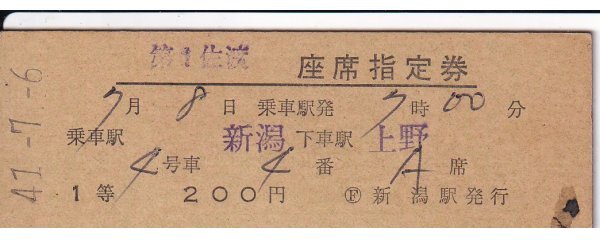 第1佐渡 座席指定券
7月 8日 乗車駅発 7時 00分
乗車駅 新潟 下車駅 上野
4号車 4番 A席
1等 200円 Ⓕ新潟駅発行
41-7-6